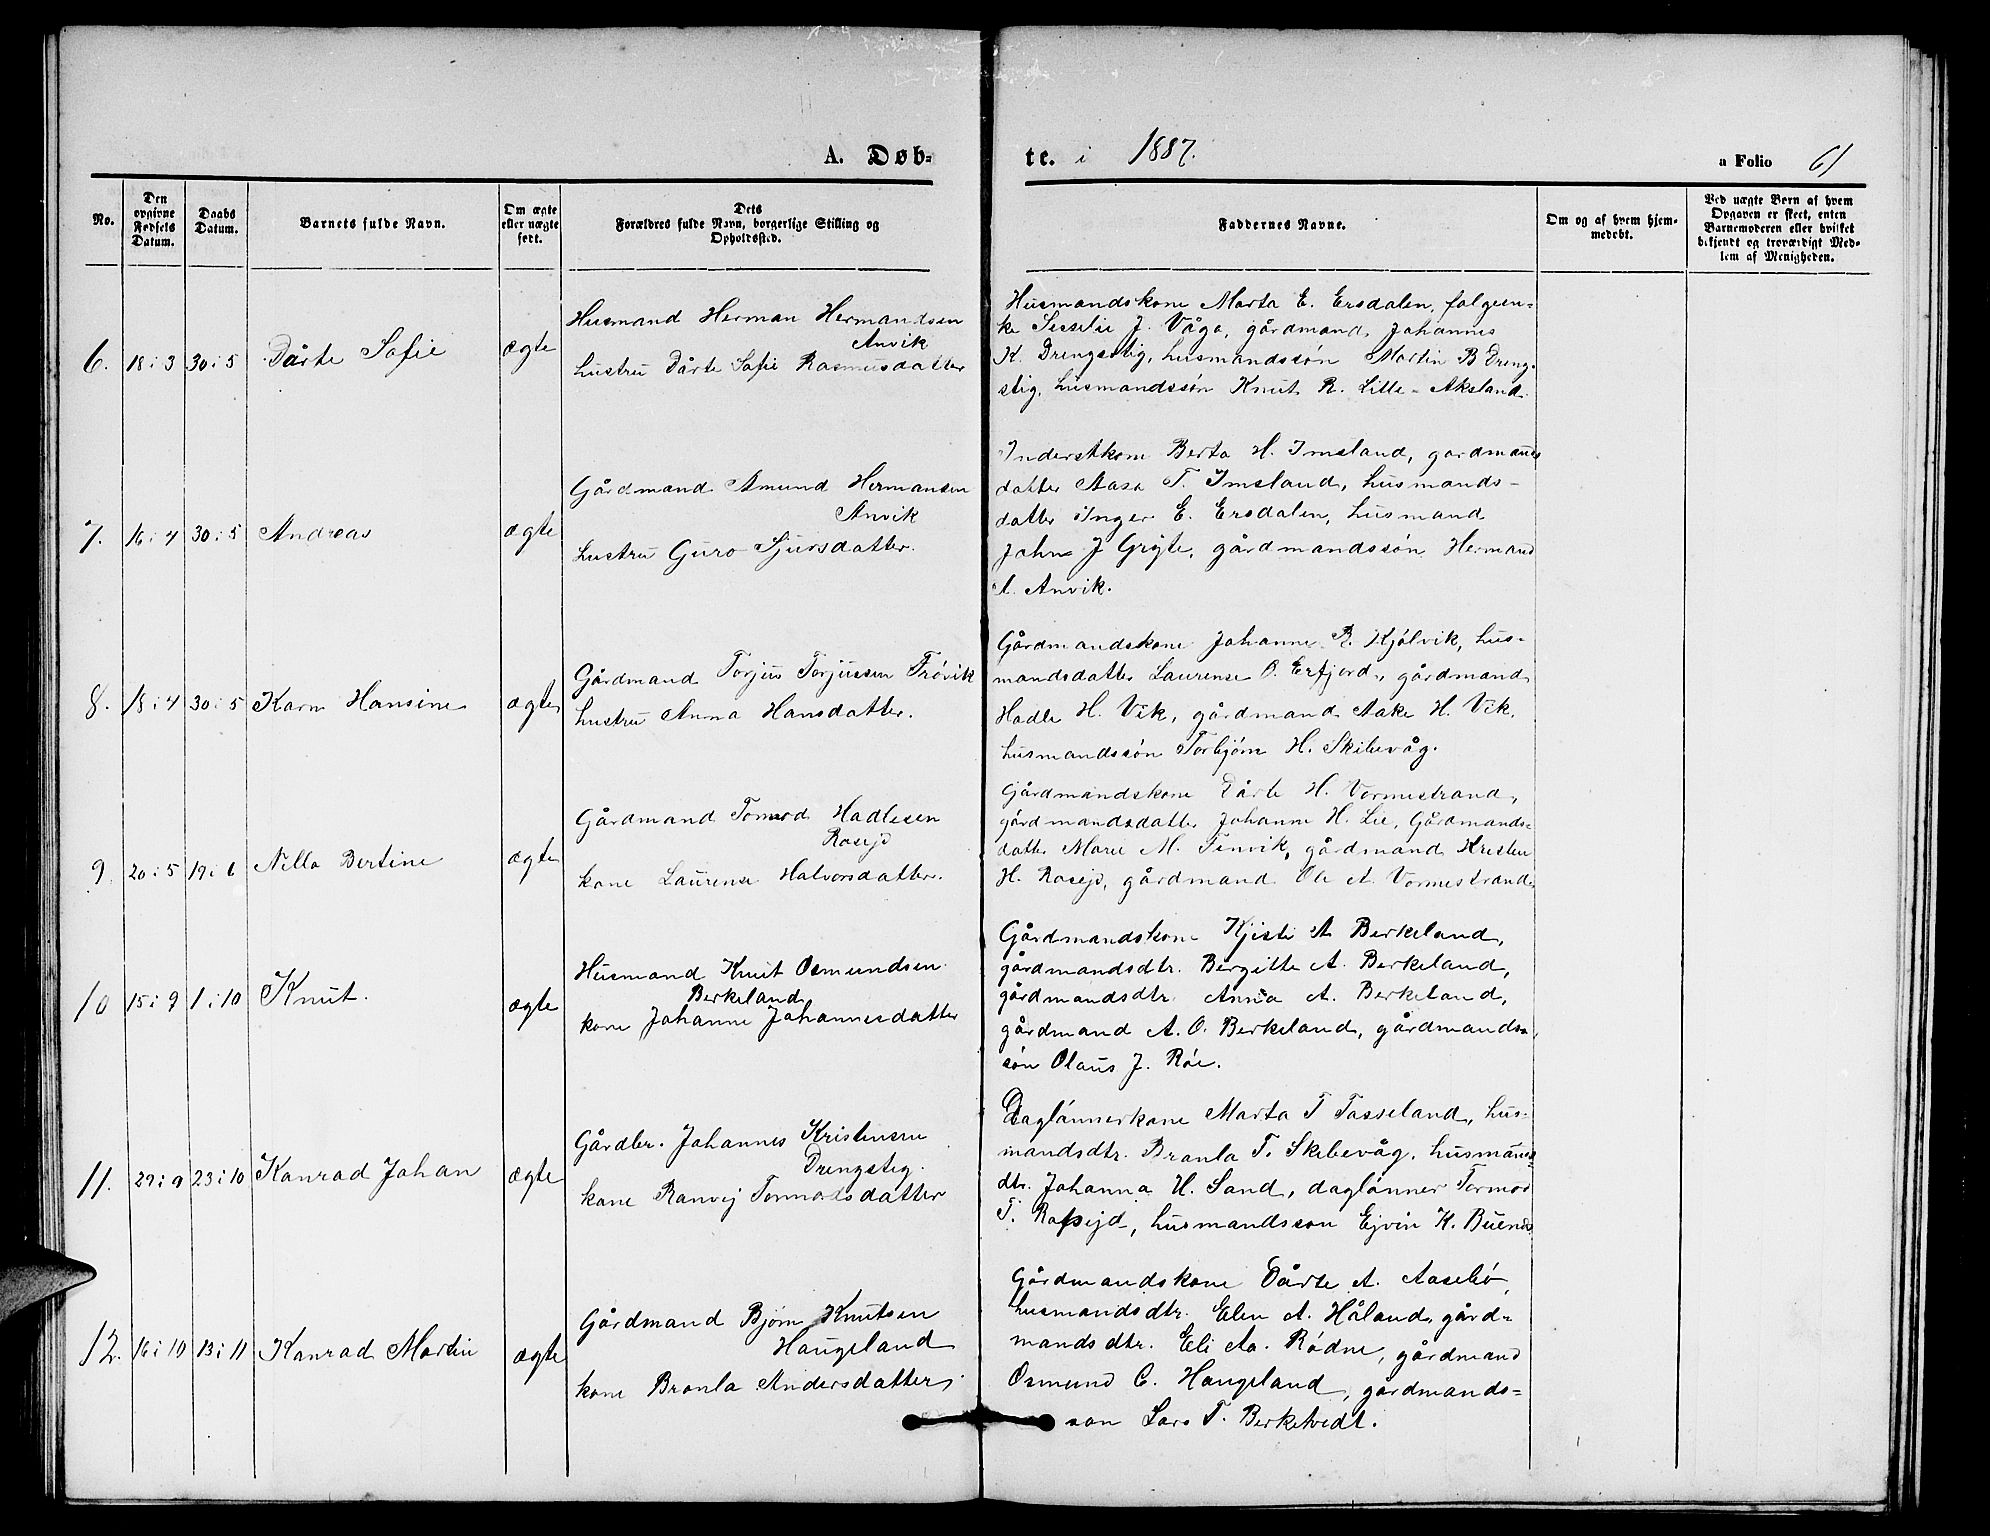 A. Døb-
te. i 1887.
a Folio 61
No.
Den opgivne Fødsels Datum.
Daabs Datum.
Barnets fulde Navn.
Om ægte eller uægte født.
Dets Forældres fulde Navn, borgerlige Stilling og Opholdssted.
Faddernes Navne.
Om og af hvem hjemmedøbt.
Ved uægte Børn af hvem Opgaven er skeet, enten Barnemoderen eller hvilket bekjendt og troværdigt Medlem af Menigheden.
6. 18 i 3 30 i 5 Dårte Sofie ægte
Husmand Herman Hermandsen
Anvik
hustru Dårte Sofie Rasmusdatter
Husmandskone Marta E. Ersdalen, folgeen-
ke Sesselie J. Våga, gårdmand Johannes
K. Drengstig, husmandssøn Martin B Dreng-
stig, husmandssøn Knut R. Lille-Aksland.
7. 16 i 4 30 i 5 Andreas ægte
Gårdmand Amund Hermansen
Anvik
hustru Guro Sjursdatter.
Inderstkone Berta H. Imsland, gardmands
datter Aasa T. Imsland, husmands-
datter Inger E. Ersdalen, husmand
John J Grigte, gårdmandssøn Hermand
A. Anvik.
8. 18 i 4 30 i 5 Karn Hansine ægte
Gårdmand Torjus Torjussen Trøvik
hustru Anna Hansdatter.
Gårdmandskone Johanne R. Kjølvik, hus-
mandsdatter Laurense O. Erfjord, gårdmand
Hadle H. Vik, gårdmand Aake H. Vik,
husmandssøn Torbjørn H. Skibevåg.
9. 20 i 5 19 i 6 Nilla Bertine ægte
Gårdmand Tomod Hadlesen
Rosejd
kone Laurense Halvorsdatter.
Gjårdmandskone Dårte H. Vormestrand,
gårdmandsdatter Johanne H. Lie, Gårdmands-
datter Marie M. Tinvik, gårdmand Kristen
H. Rosejd, gårdmand Ole A. Vormestrand.
10 15 i 9 1 i 10 Knut. ægte
Husmand Knut Osmundsen
Berkeland
kone Johanne Johannesdatter
Gårdmandskone Kjisti A Berkeland,
gårdmandsdtr. Bergitte A. Berkeland,
gårdmandsdtr. Anna A. Berkeland,
gårdmand A. O. Berkeland, gårdmands-
søn Olaus J. Røe.
11. 29 i 9 23 i 10 Konrad Johan ægte
Gårdbr. Johannes Kristensen
Drengstig.
kone Ranvej Tormodsdatter
Daglønnerkone Marta T Tasseland, hus-
mandsdtr. Branla T. Skibevåg, husmands-
dtr. Johanna H. Sand, dagløner Tormod
T. Rossejd, husmandsson Ejvin K. Buends
12. 16 i 10 13 i 11 Konrad Martin ægte
Gårdmand Bjørn Knutsen
Haugeland
kone Branla Andersdatter.
Gårdmandskone Dårte A. Aasebø,
husmandsdtr. Elen A. Håland, gård-
mandsdtr. Eli Aa. Rødne, gårdmand
Osmund C. Haugeland, gårdmands-
son Lars T. Berketvedt.